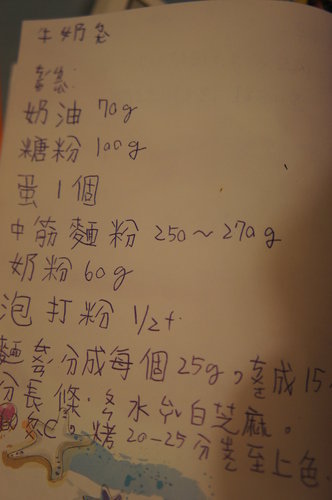 牛奶条
奶油 70g
糖粉 100g
蛋 1 個
中筋麵粉 250～270g
奶粉 60g
泡打粉 1/2t
麵 分成每個 25g，成 15
分長條。 水 白芝麻。
℃。烤 20-25 分 至上色